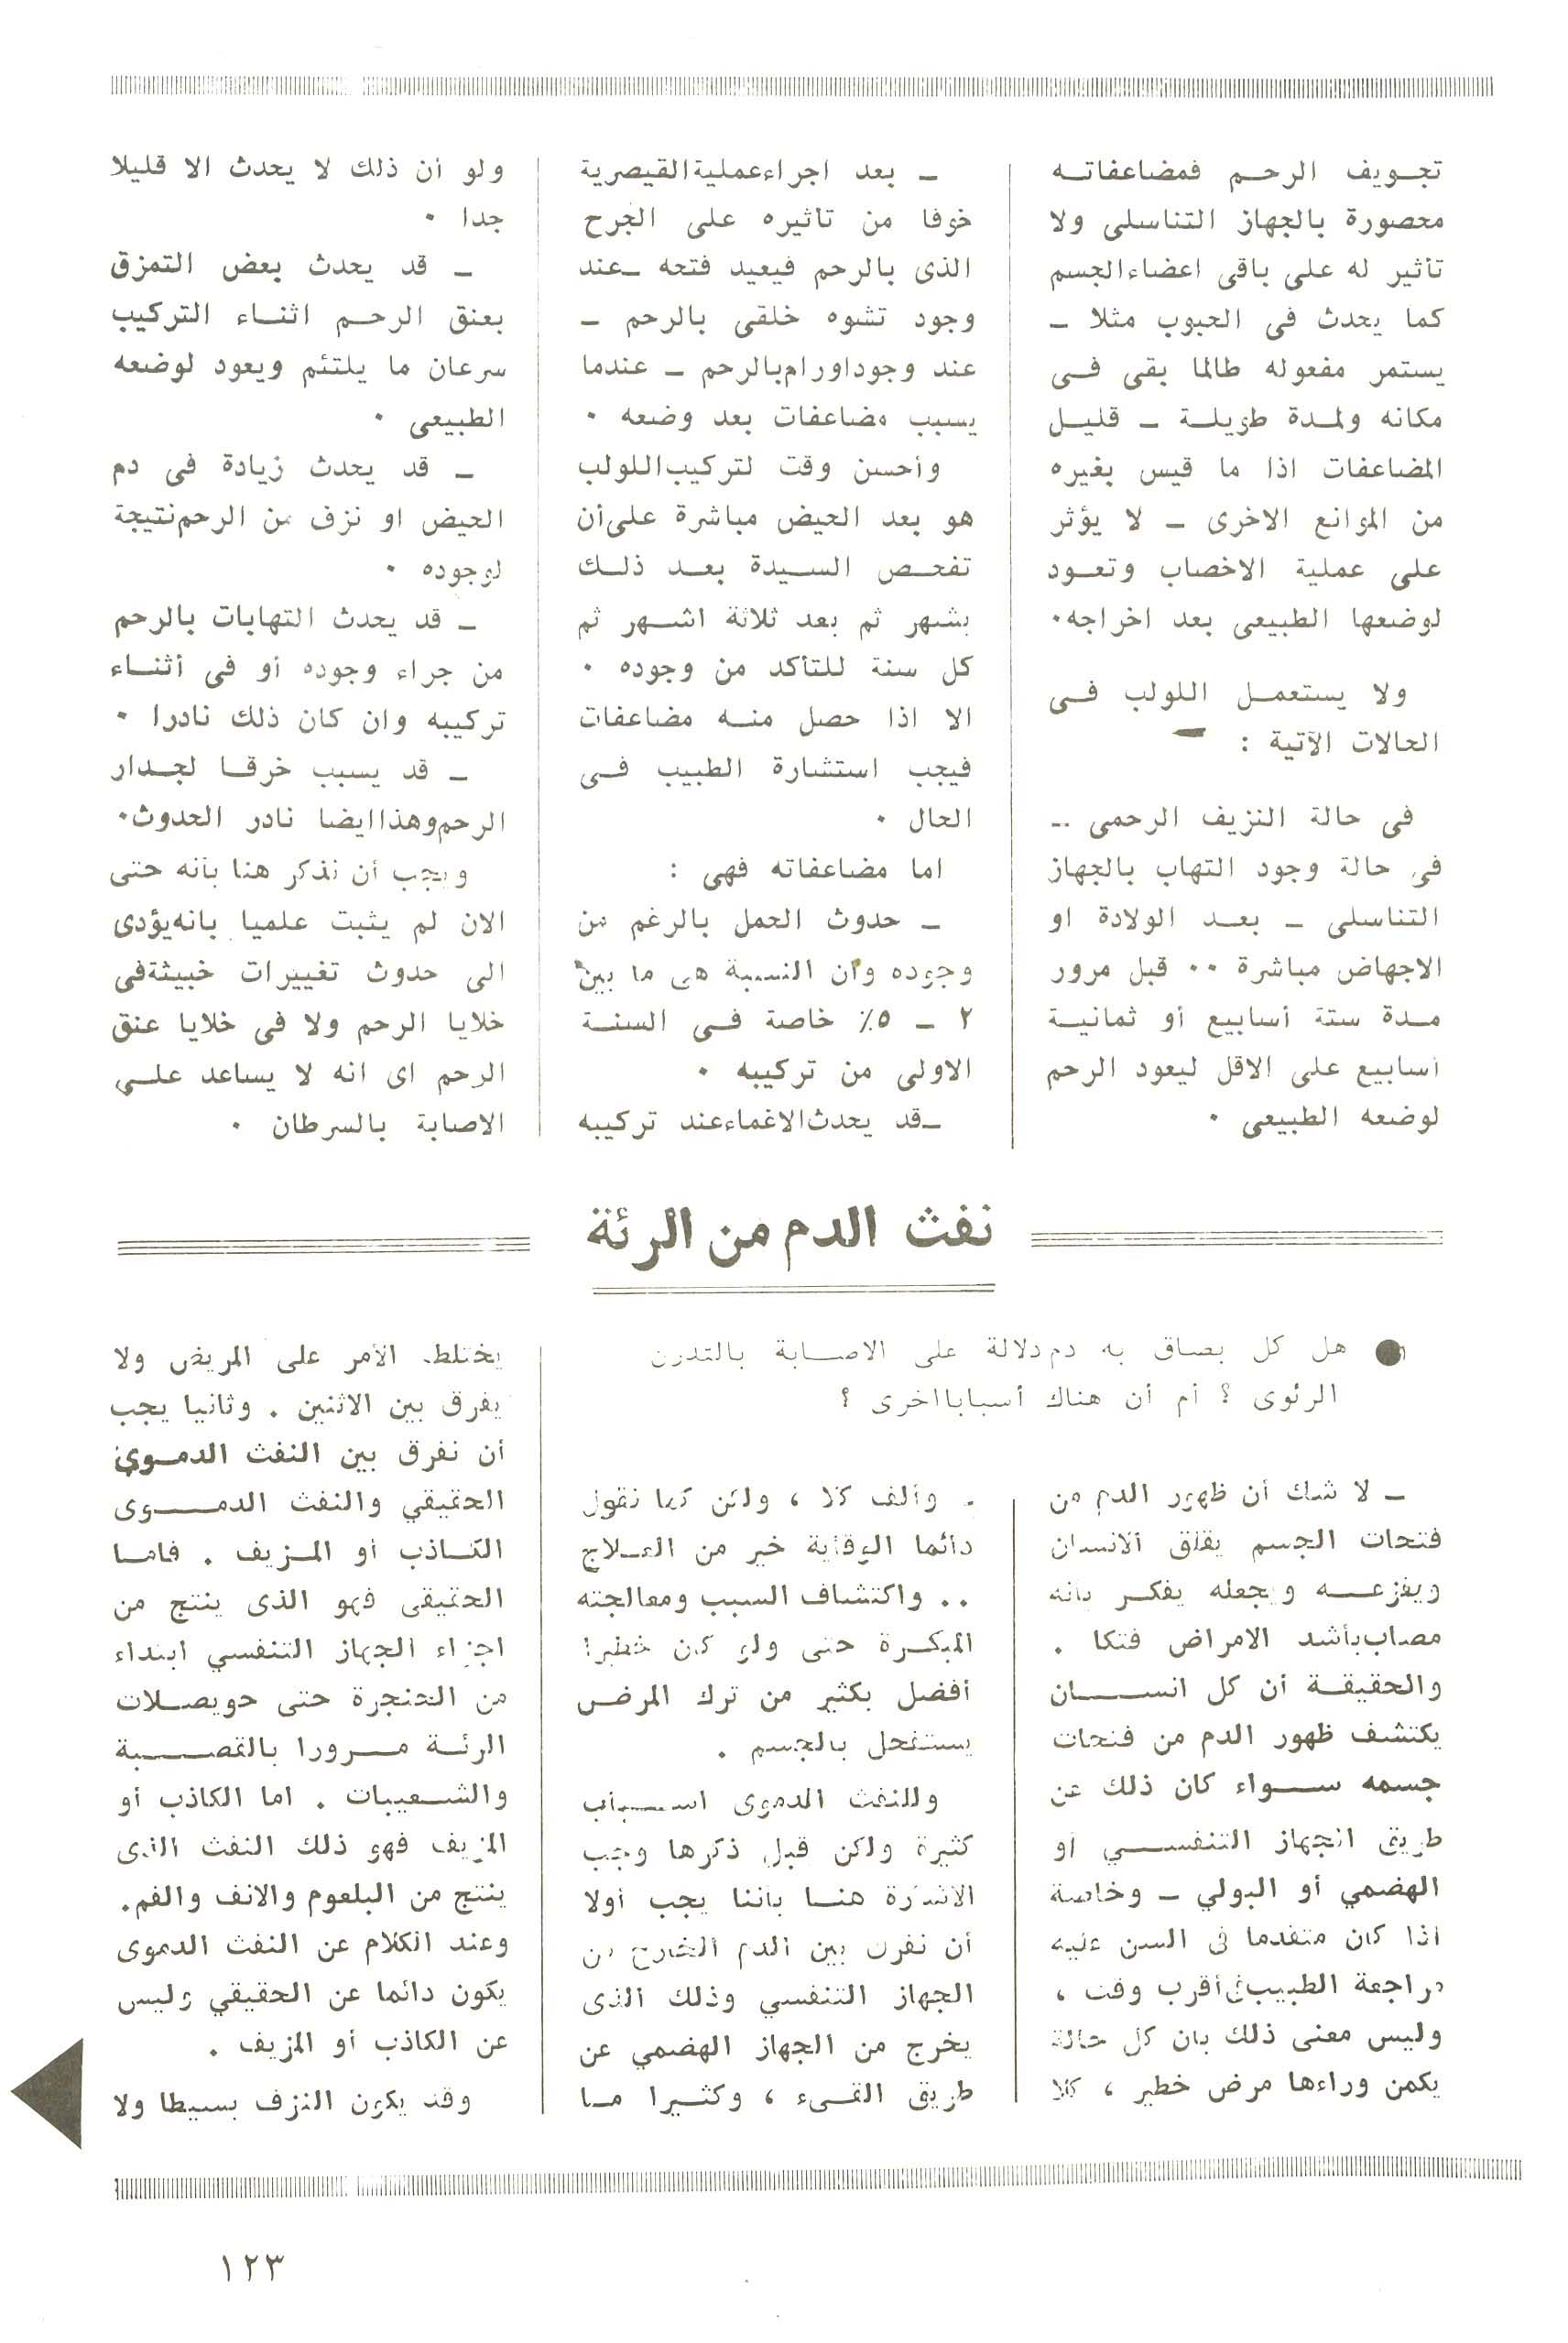 تجويف الرحم فمضاعفاته
محصورة بالجهاز التناسلى ولا
تأثير له على باقى اعضاء الجسم
كما يحدث فى الحبوب مثلا ـ
يستمر مفعوله طالما بقى فى
مكانه ولمدة طويلة ـ قليل
المضاعفات اذا ما قيس بغيره
من الموانع الاخرى ـ لا يؤثر
على عملية الاخصاب وتعود
لوضعها الطبيعى بعد اخراجه٠
ولا يستعمل اللولب فى
الحالات الآتية : ـ
فى حالة النزيف الرحمى ..
فى حالة وجود التهاب بالجهاز
التناسلى ـ بعد الولادة او
الاجهاض مباشرة ٠٠ قبل مرور
مدة ستة أسابيع أو ثمانية
أسابيع على الاقل ليعود الرحم
لوضعه الطبيعى ٠
ـ بعد اجراء عملية القيصرية
خوفا من تأثيره على الجرح
الذى بالرحم فيعيد فتحه ـ عند
وجود تشوه خلقى بالرحم ـ
عند وجود اورام بالرحم ـ عندما
يسبب مضاعفات بعد وضعه ٠
وأحسن وقت لتركيب اللولب
هو بعد الحيض مباشرة على أن
تفحص السيدة بعد ذلك
بشهر ثم بعد ثلاثة اشهر ثم
كل سنة للتأكد من وجوده ٠
الا اذا حصل منه مضاعفات
فيجب استشارة الطبيب فى
الحال ٠
اما مضاعفاته فهى :
ـ حدوث الحمل بالرغم من
وجوده وان النسبة هى ما بين
٢ ـ ٥٪ خاصة فى السنة
الاولى من تركيبه ٠
ـ قد يحدث الاغماء عند تركيبه
ولو أن ذلك لا يحدث الا قليلا
جدا ٠
ـ قد يحدث بعض التمزق
بعنق الرحم اثناء التركيب
سرعان ما يلتئم ويعود لوضعه
الطبيعى ٠
ـ قد يحدث زيادة فى دم
الحيض او نزف من الرحم نتيجة
لوجوده ٠
ـ قد يحدث التهابات بالرحم
من جراء وجوده أو فى أثناء
تركيبه وان كان ذلك نادرا ٠
ـ قد يسبب خرقا لجدار
الرحم وهذا ايضا نادر الحدوث٠
ويجب أن نذكر هنا بأنه حتى
الان لم يثبت علميا بانه يؤدى
الى حدوث تغييرات خبيثة فى
خلايا الرحم ولا فى خلايا عنق
الرحم اى انه لا يساعد على
الاصابة بالسرطان ٠
نفث الدم من الرئة
● هل كل بصاق به دم دلالة على الاصابة بالتدرن
الرئوى ؟ أم أن هناك أسبابا اخرى ؟
ـ لا شك أن ظهور الدم من
فتحات الجسم يقلق الانسان
ويفزعه ويجعله يفكر بانه
مصاب بأشد الامراض فتكا .
والحقيقة أن كل انسان
يكتشف ظهور الدم من فتحات
جسمه سواء كان ذلك عن
طريق الجهاز التنفسي أو
الهضمي أو البولي ـ وخاصة
اذا كان متقدما في السن عليه
مراجعة الطبيب في أقرب وقت ،
وليس معنى ذلك بان كل حالة
يكمن وراءها مرض خطير ، كلا
. وألف كلا ، ولكن كما نقول
دائما الوقاية خير من العلاج
.. واكتشاف السبب ومعالجته
المبكرة حتى ولو كان خطيرا
أفضل بكثير من ترك المرض
يستفحل بالجسم .
وللنفث الدموى اسباب
كثيرة ولكن قبل ذكرها وجب
الاشارة هنا بأننا يجب أولا
أن نفرق بين الدم الخارج من
الجهاز التنفسي وذلك الذى
يخرج من الجهاز الهضمي عن
طريق القىء ، وكثيرا ما
يختلط الامر على المريض ولا
يفرق بين الاثنين . وثانيا يجب
أن نفرق بين النفث الدموي
الحقيقي والنفث الدموى
الكاذب أو المزيف . فاما
الحقيقى فهو الذى ينتج من
اجزاء الجهاز التنفسي ابتداء
من الحنجرة حتى حويصلات
الرئة مرورا بالقصبة
والشعيبات . اما الكاذب أو
المزيف فهو ذلك النفث الذى
ينتج من البلعوم والانف والفم.
وعند الكلام عن النفث الدموى
يكون دائما عن الحقيقي وليس
عن الكاذب أو المزيف .
وقد يكون النزف بسيطا ولا
١٢٣